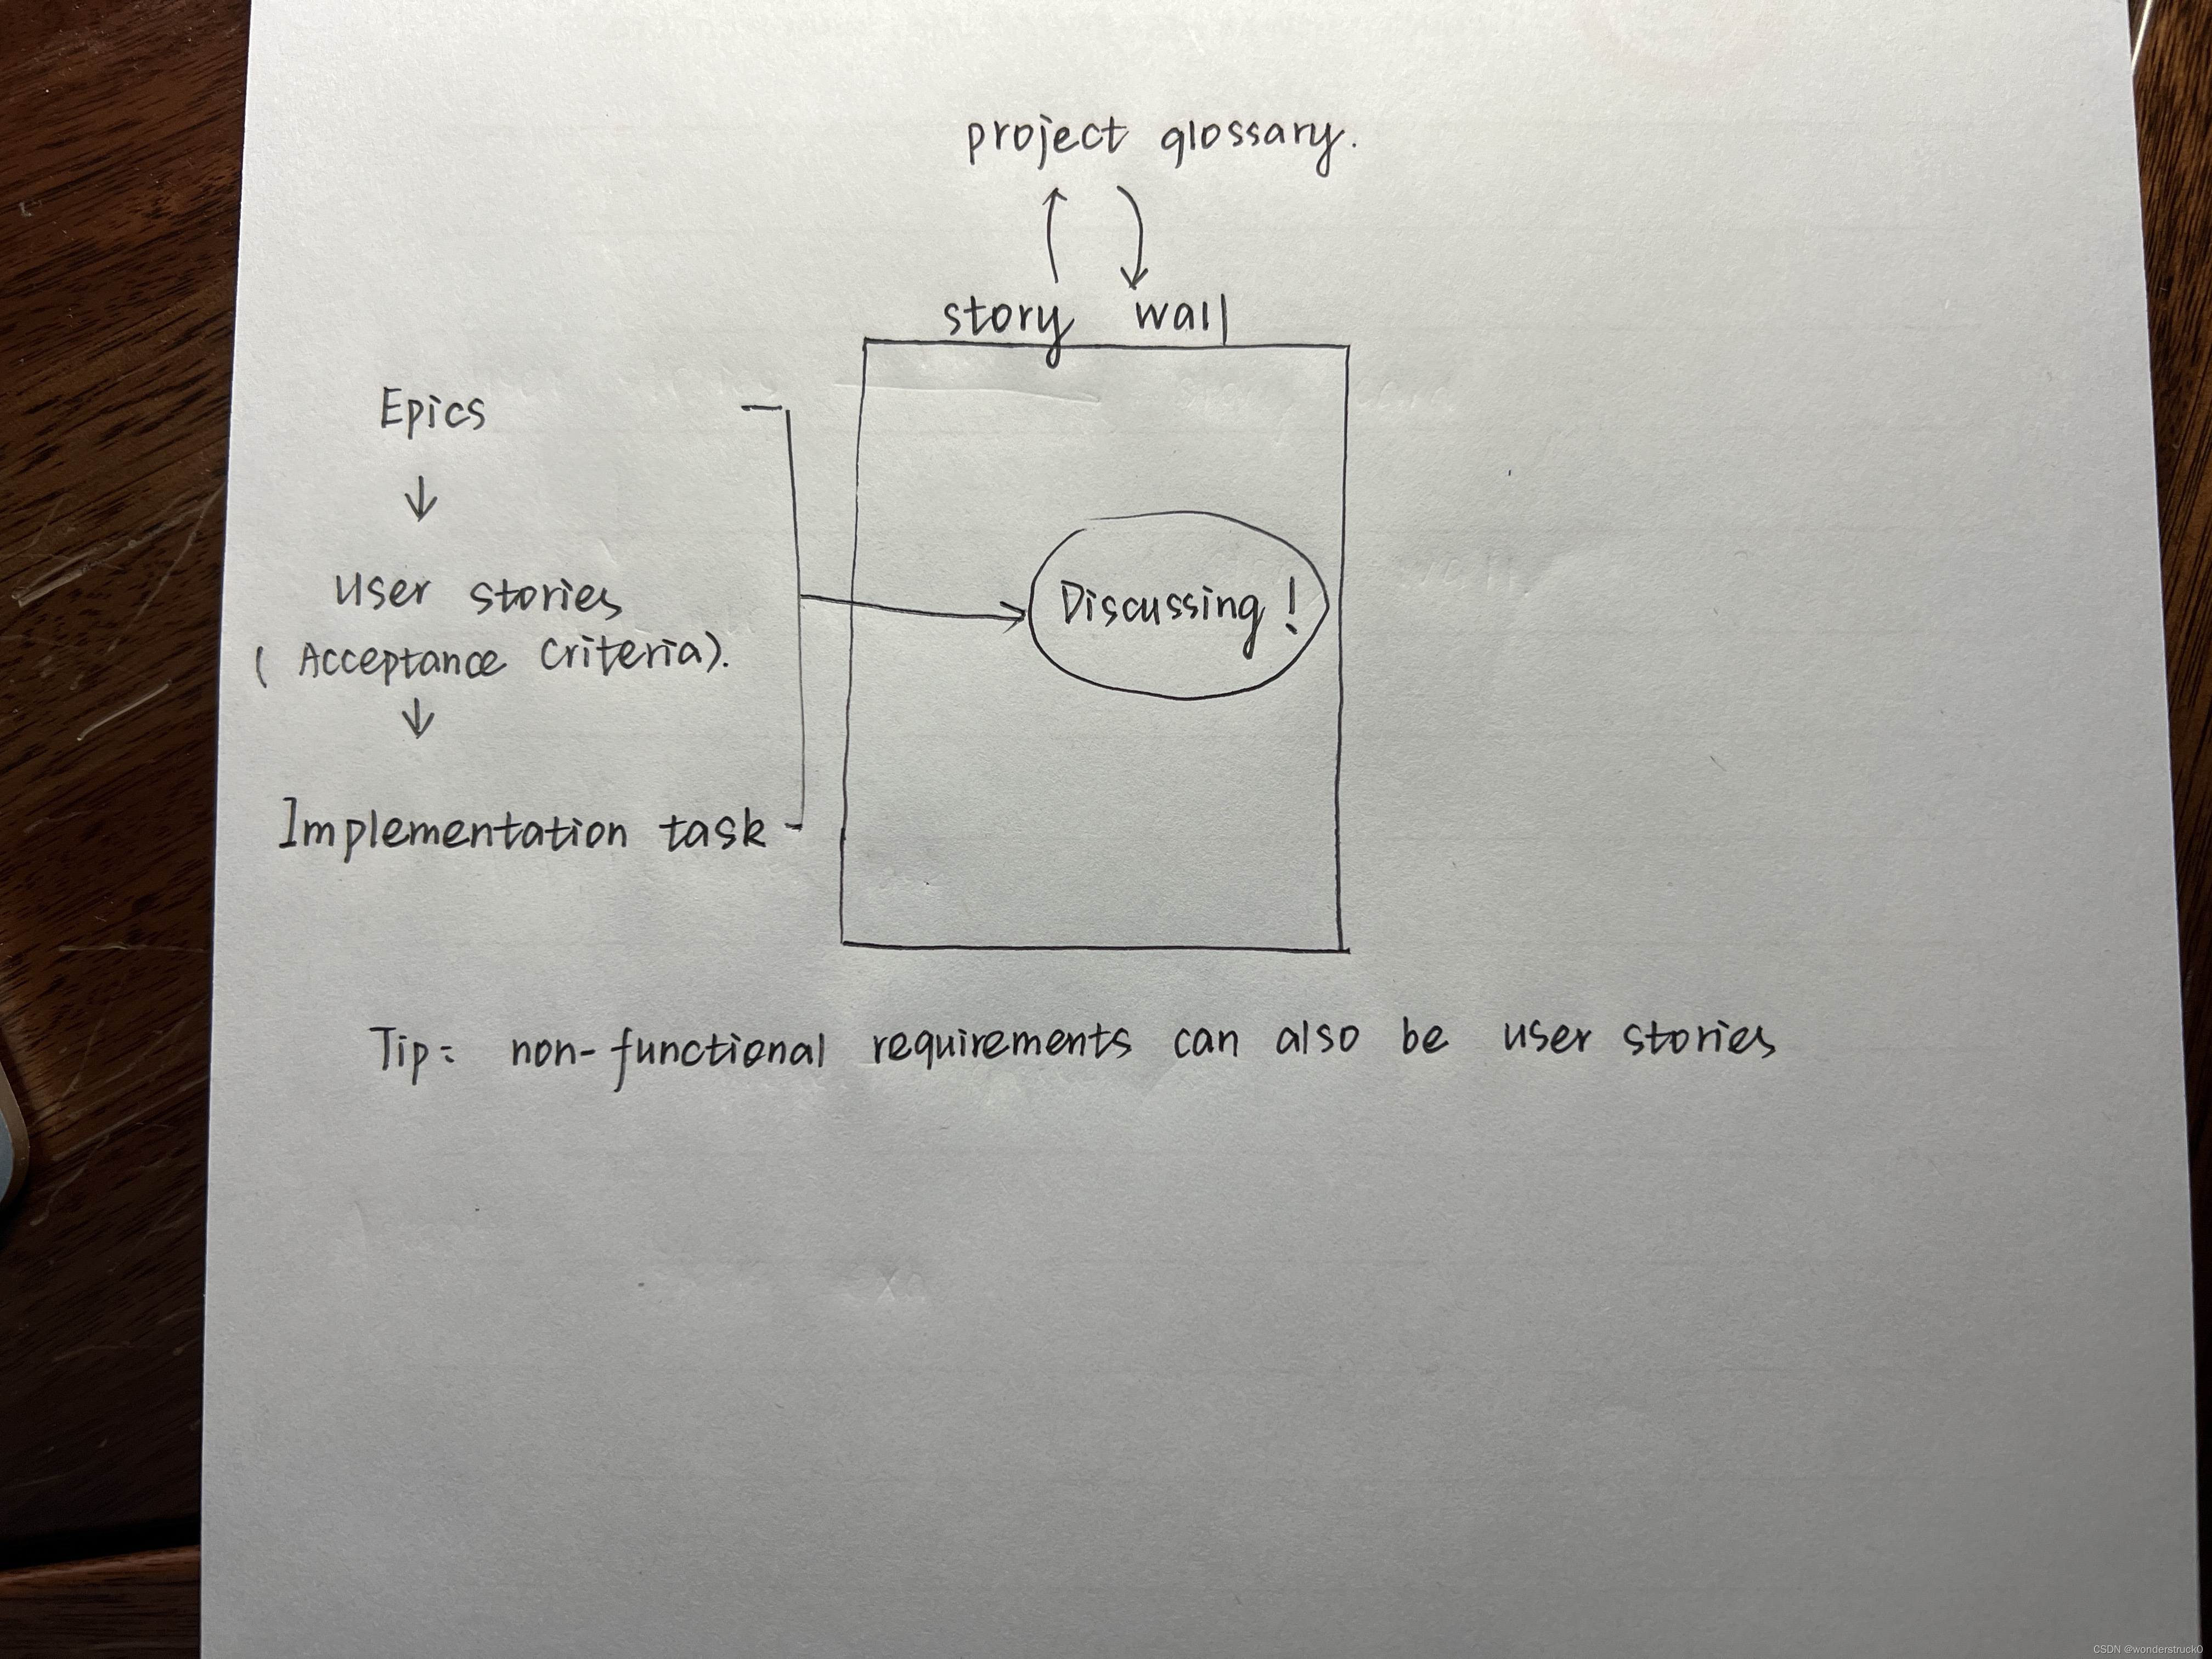 project glossary.
story wall
Epics
User stories
(Acceptance Criteria).
Discussing!
Implementation task
Tip: non-functional requirements can also be user stories
CSDN @wonderstruck0